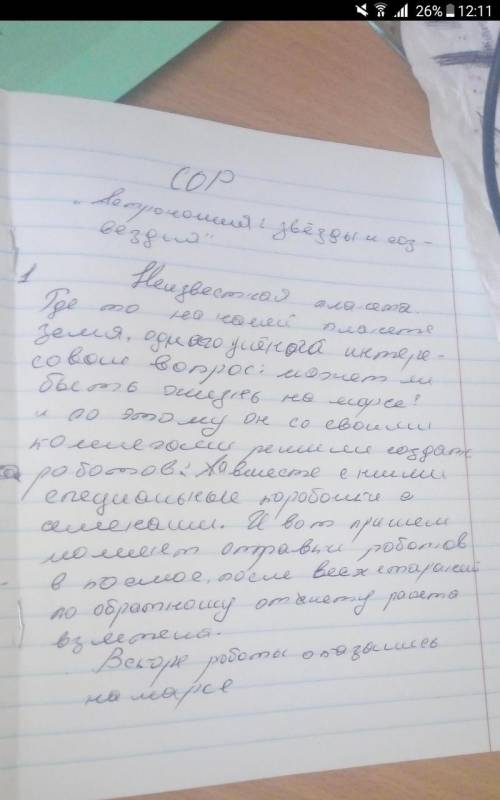 26% 12:11
СОР
"Астрономия: звёзды и соз-
вездия"
1 Неизвестная планета.
Где то на нашей планете
Земля, одного учёного интере-
совал вопрос: может ли
быть жизнь на марсе?
и по этому он со своими
коллегами решили создать
роботов. А вместе с ними
специальные коробочки с
семенами. И вот пришел
момент отправки роботов
в космос, после всех стараний
по обратному отсчету ракета
взлетела.
Вскоре роботы оказались
на марсе